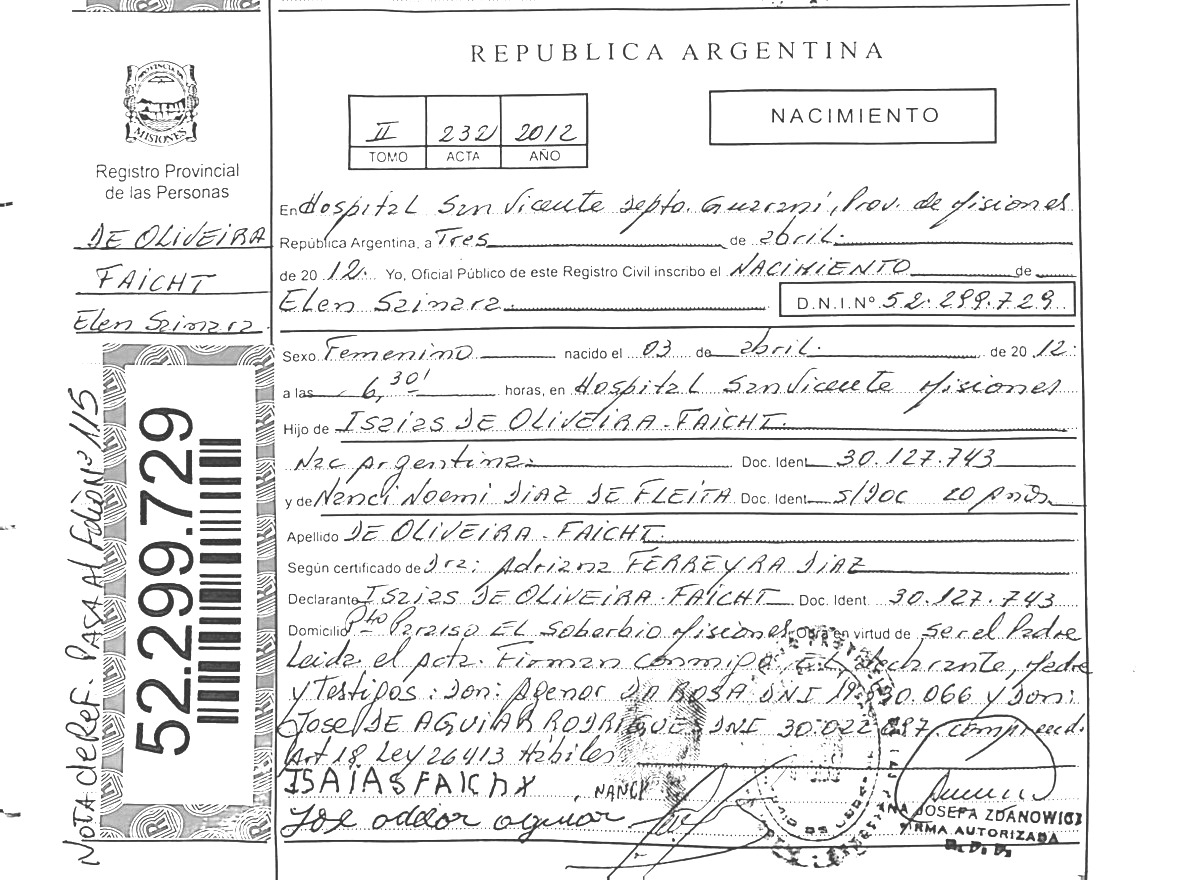 REPUBLICA ARGENTINA
PROVINCIA DE
MISIONES
Registro Provincial
de las Personas
DE OLIVEIRA
FAICHT
Elen Szinara
NOTA de Ref. PASA Al Folio Nº 115
52.299.729
II 232 2012
TOMO ACTA AÑO
NACIMIENTO
En Hospital San Vicente Depto. Guarani, Prov. de Misiones
República Argentina, a Tres de abril.
de 20 12. Yo, Oficial Público de este Registro Civil inscribo el NACIMIENTO de
Elen Szinara. D.N.I.Nº 52.299.729
Sexo Femenino nacido el 03 de abril. de 20 12.
a las 6,30' horas, en Hospital San Vicente Misiones
Hijo de Isaias DE OLIVEIRA-FAICHT.
Nac Argentina. Doc. Ident. 30.127.743
y de Nanci Noemi DIAZ DE FLEITA Doc. Ident. S/DOC 20 años
Apellido DE OLIVEIRA-FAICHT.
Según certificado de Dra: Adriana FERREYRA DIAZ
Declarante Isaias DE OLIVEIRA-FAICHT Doc. Ident. 30.127.743
Domicilio Pto Paraiso EL Soberbio Misiones. Obra en virtud de ser el Padre
Leida el acta. Firman conmigo EL declarante, Madre
y Testigos: Don: Agenor DA ROSA DNI 066 y Don:
Jose DE AGUIAR RODRIGUES DNI 30.022 comprend.
Art 18 Ley 26413 Habiles
ISAIAS FAICHX NANCY
Jose aguiar
JOSEFA ZDANOWICZ
FIRMA AUTORIZADA